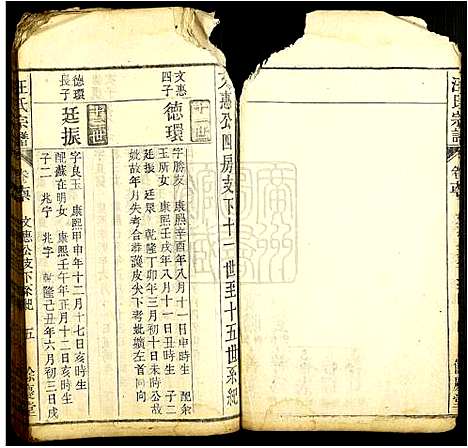 汪氏宗譜
文惠公四房支下十一世至十五世系紀
十一世
文惠四子
德環
字勝友 康熙辛酉年八月十一日申時生 配余
玉所女 康熙壬戌年八月十一日丑時生 子二
廷振 廷杲 乾隆丁卯年三月初十日未時歿
妣故年月失考合葬
皮尖下考
左首同向
十二世
德環長子
廷振
字良玉 康熙甲申年十二月十七日亥時生
配戴在明女 康熙壬午年正月十二日亥時生
子二 兆宇 乾隆己丑年六月初三日戌
汪氏宗譜
文惠公支下系紀
五
餘慶堂